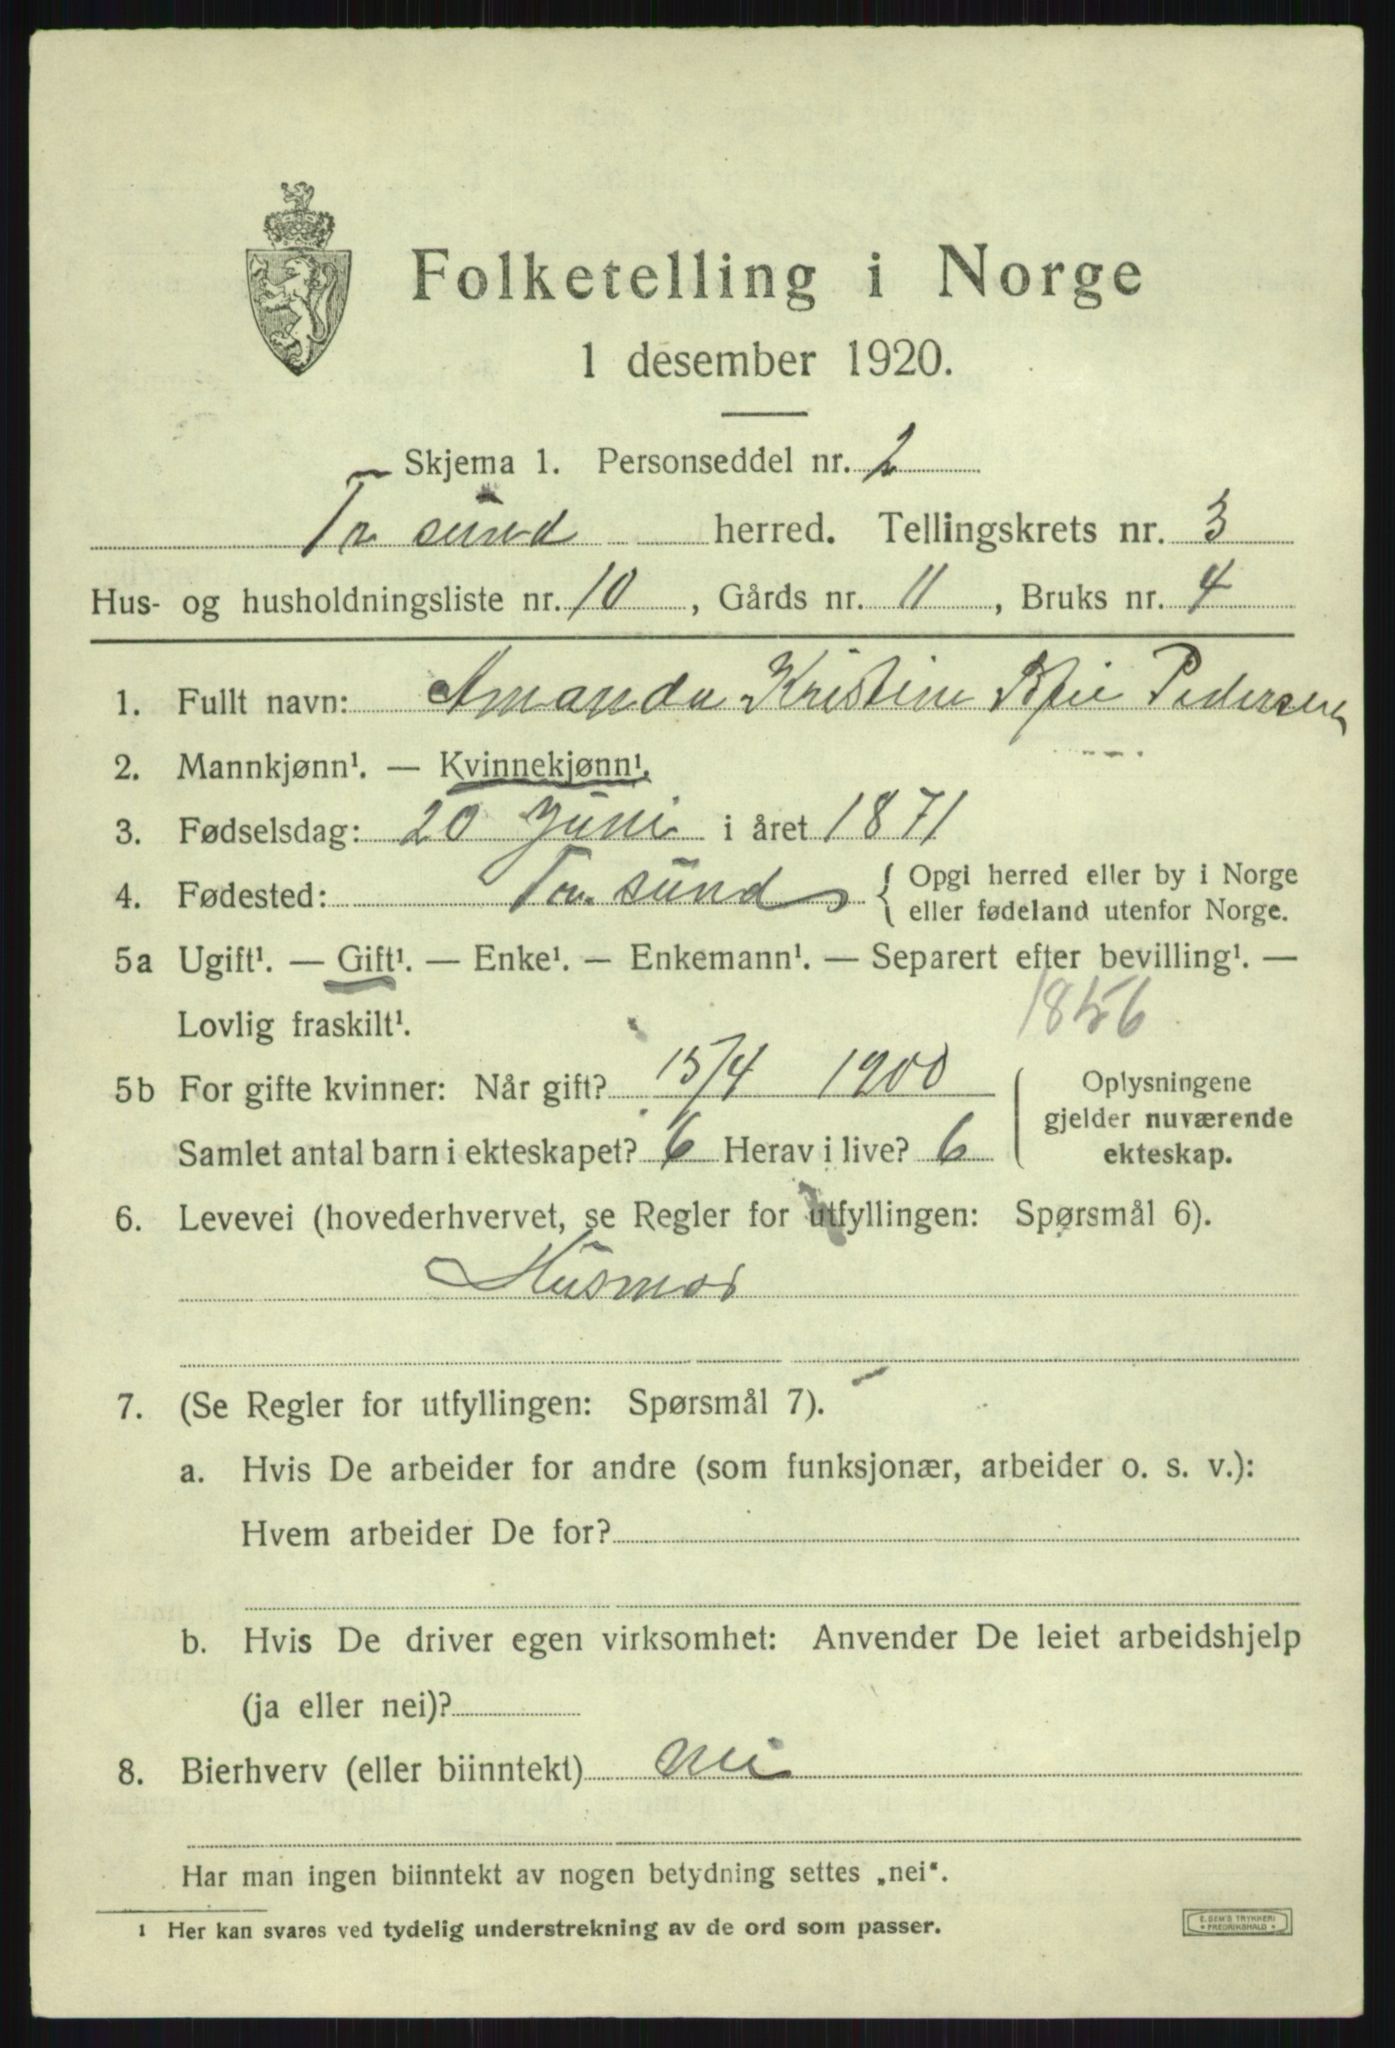 Folketelling i Norge
1 desember 1920.
Skjema 1. Personseddel nr. 2
Tr. sund herred. Tellingskrets nr. 3
Hus- og husholdningsliste nr. 10, Gårds nr. 11, Bruks nr. 4
1. Fullt navn: Amanda Kristine Pedersen
2. Mannkjønn¹. — Kvinnekjønn¹.
3. Fødselsdag: 20 Juni i året 1871
4. Fødested: Tr. sund { Opgi herred eller by i Norge
eller fødeland utenfor Norge.
5a Ugift¹. — Gift¹. — Enke¹. — Enkemann¹. — Separert efter bevilling¹. —
Lovlig fraskilt¹. 1856
5b For gifte kvinner: Når gift? 15/4 1900
Samlet antal barn i ekteskapet? 6 Herav i live? 6
Oplysningene
gjelder nuværende
ekteskap.
6. Levevei (hovederhvervet, se Regler for utfyllingen: Spørsmål 6).
Husmor
7. (Se Regler for utfyllingen: Spørsmål 7).
a. Hvis De arbeider for andre (som funksjonær, arbeider o. s. v.):
Hvem arbeider De for?
b. Hvis De driver egen virksomhet: Anvender De leiet arbeidshjelp
(ja eller nei)?
8. Bierhverv (eller biinntekt) nei
Har man ingen biinntekt av nogen betydning settes „nei“.
¹ Her kan svares ved tydelig understrekning av de ord som passer.
E. SEM'S TRYKKERI
* FREDRIKSHALD *